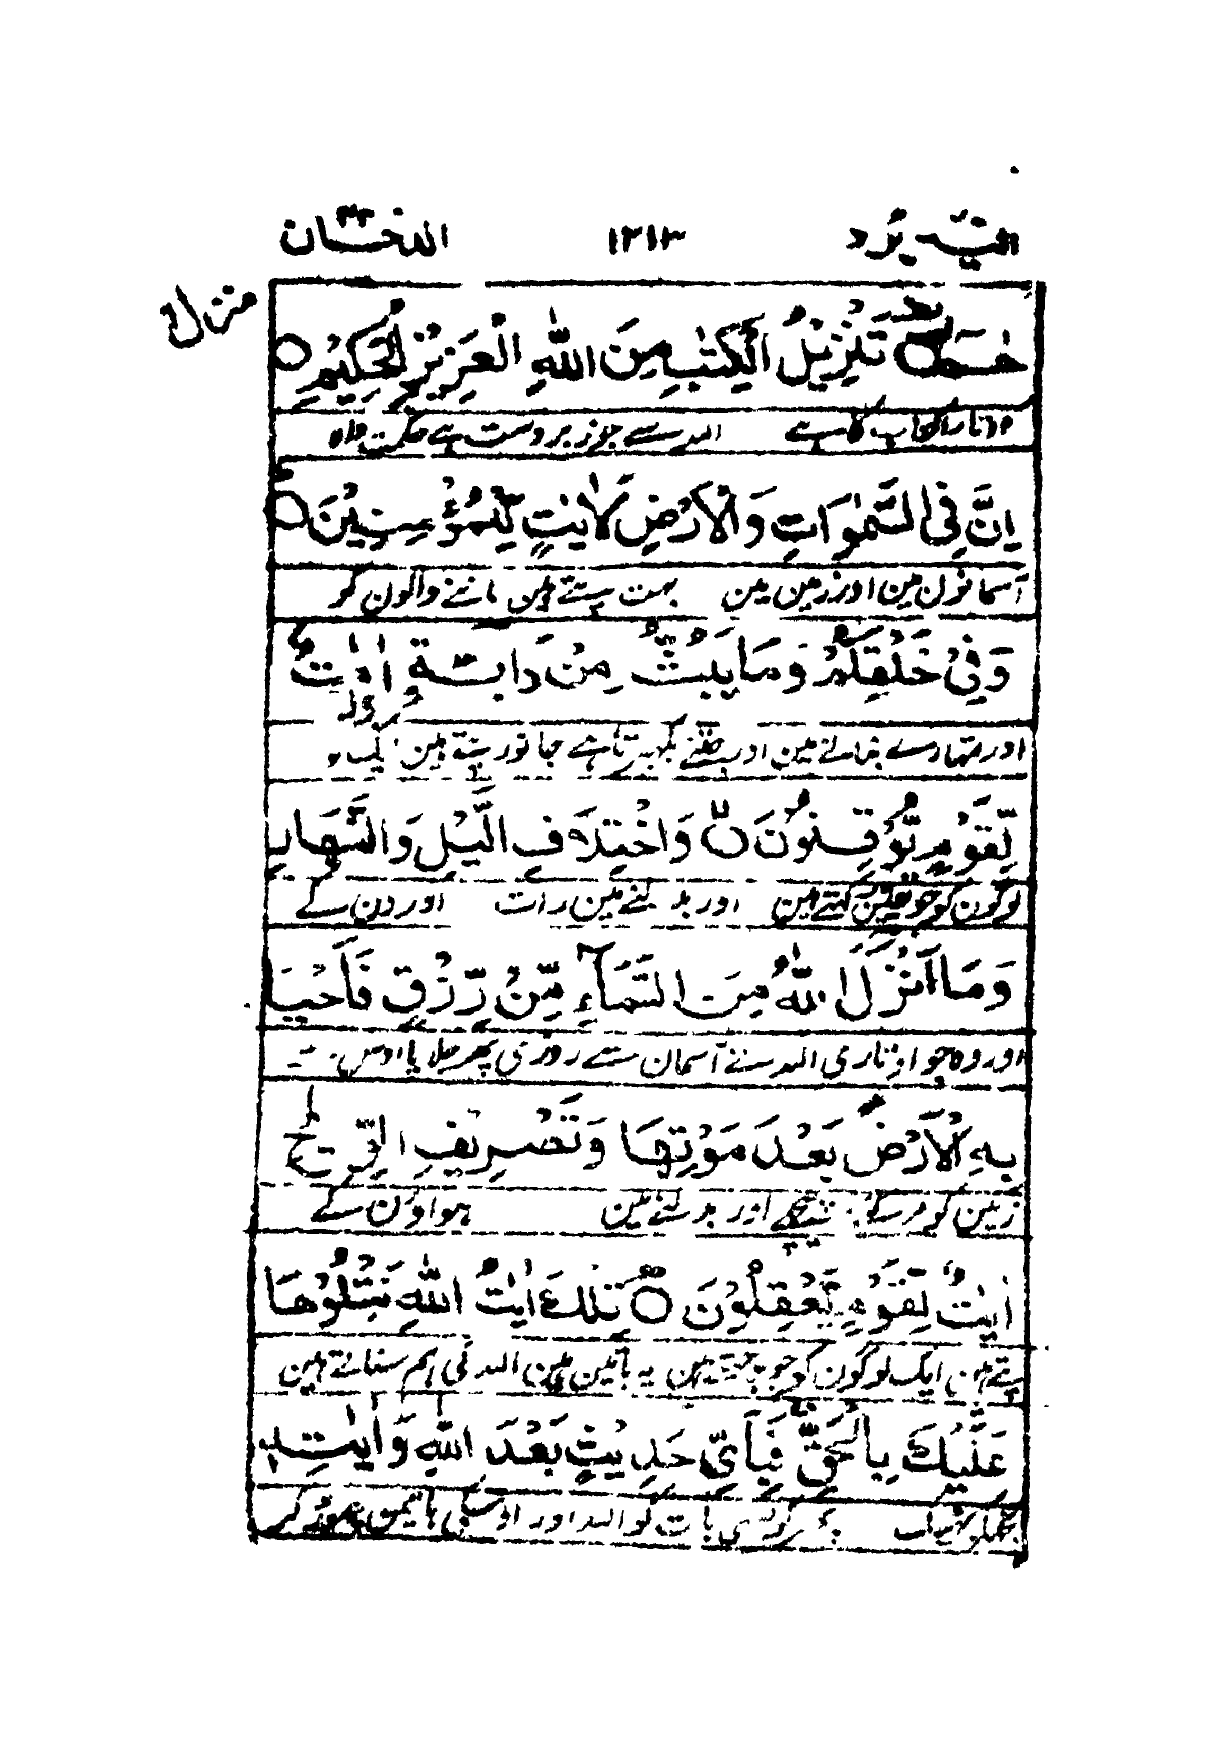 الیه یرد ۱۲۱۳ الدخان ۴۴
منزل
حٰمٓ ۚ تَنْزِيْلُ الْكِتٰبِ مِنَ اللّٰهِ الْعَزِيْزِ الْحَكِيْمِ ○
اوتارا کتاب کا ہے اللہ سے جو زبردست ہے حکمت والا
اِنَّ فِی السَّمٰوٰاتِ وَالْاَرْضِ لَاٰیٰتٍ لِّلْمُؤْمِنِیْنَ ○
آسمانون مین اور زمین مین بہت پتے ہین ماننے والون کو
وَفِیْ خَلْقِكُمْ وَمَا یَبُثُّ مِنْ دَابَّةٍ اٰیٰتٌ
اور تمہارے بنانے مین اور جتنے بکھیرتا ہے جانور پتے ہین ایک
لِّقَوْمٍ یُّوْقِنُوْنَ ○ وَاخْتِلَافِ الَّیْلِ وَالنَّهَارِ
لوگون کو جو یقین رکھتے ہین اور بدلنے مین رات اور دن کے
وَمَا اَنْزَلَ اللّٰهُ مِنَ السَّمَآءِ مِنْ رِّزْقٍ فَاَحْیَا
اور وہ جو اوتاری اللہ نے آسمان سے روزی پھر جلایا اوس سے
بِهِ الْاَرْضَ بَعْدَ مَوْتِهَا وَتَصْرِیْفِ الرِّیٰحِ
زمین کو مرگئے پیچھے اور بدلنے مین ہواؤن کے
اٰیٰتٌ لِّقَوْمٍ یَّعْقِلُوْنَ ○ تِلْكَ اٰیٰتُ اللّٰهِ نَتْلُوْهَا
پتے ہین ایک لوگون کو جو بوجھتے ہین یہ باتین ہین اللہ کی ہم سناتے ہین
عَلَیْكَ بِالْحَقِّ فَبِاَیِّ حَدِیْثٍ بَعْدَ اللّٰهِ وَاٰیٰتِهٖ
تجھکو ٹھیک پھر کونسی بات کو اللہ اور اوسکی باتین چھوڑ کر